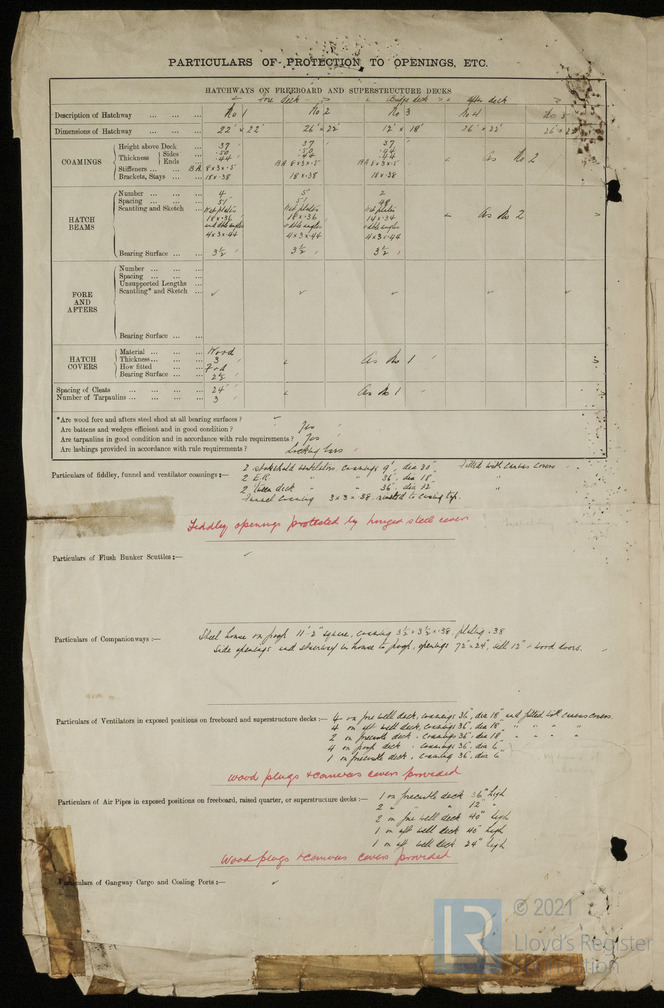 PARTICULARS OF PROTECTION TO OPENINGS, ETC.
HATCHWAYS ON FREEBOARD AND SUPERSTRUCTURE DECKS
Fore deck Bridge deck After deck
Description of Hatchway ... ... ... No 1 No 2 No 3 No 4 No 5
Dimensions of Hatchway ... ... ... 22' x 22' 26' x 22' 12' x 18' 26' x 22' 26' x 22'
COAMINGS
Height above Deck ... 37" 37" 37"
Thickness { Sides ... .50 .50 .44
Ends ... .44 .44 .44
Stiffeners ... ... B.A. 8 x 3 x .5" B.A. 8 x 3 x .5" B.A. 8 x 3 x .5" " As No 2
Brackets, Stays ... ... 18 x .38 18 x .38 18 x .38
HATCH BEAMS
Number ... ... ... 4 5 2
Spacing ... ... ... 51" 51" 48"
Scantling and Sketch ... Web plates Web plates Web plates
18 x .36 18 x .36 14 x .34
and dble angles & dble angles & dble angles " As No 2
4 x 3 x .44 4 x 3 x .44 4 x 3 x .44
Bearing Surface ... ... 3½" 3½" 3½"
FORE AND AFTERS
Number ... ... ...
Spacing ... ... ...
Unsupported Lengths ...
Scantling* and Sketch ... ✓ ✓ ✓ ✓ ✓
Bearing Surface ... ...
HATCH COVERS
Material ... ... ... Wood
Thickness ... ... ... 3" " As No 1 "
How fitted ... ... F & A
Bearing Surface ... ... 2½"
Spacing of Cleats ... ... ... ... 24" " As No 1
Number of Tarpaulins ... ... ... ... 3
*Are wood fore and afters steel shod at all bearing surfaces ? ✓
Are battens and wedges efficient and in good condition ? Yes
Are tarpaulins in good condition and in accordance with rule requirements ? Yes
Are lashings provided in accordance with rule requirements ? Locking bars
Particulars of fiddley, funnel and ventilator coamings :— 2 stokehold ventilators, coamings 9', dia 30". Fitted with canvas covers
2 E.R. " " 36", dia 18" "
2 deck " " 36", dia 12"
Funnel coaming 3 x 3 x .38 riveted to casing top.
Fiddley openings protected by hinged steel covers
Particulars of Flush Bunker Scuttles :— ✓
Particulars of Companionways :— Steel house on poop 11'-2" square, coaming 3½ x 3½ x .38, plating .38
Side openings and stairway in house to poop, openings 72" x 24", sill 12" & wood doors.
Particulars of Ventilators in exposed positions on freeboard and superstructure decks :— 4 on fore well deck, coamings 36", dia 18" and fitted with canvas covers.
4 on aft well deck, coamings 36", dia 18" " " " "
2 on forecastle deck, coamings 36", dia 18" " " " "
4 on poop deck, coamings 36", dia 6"
1 on forecastle deck, coaming 36", dia 6"
Wood plugs & canvas covers provided
Particulars of Air Pipes in exposed positions on freeboard, raised quarter, or superstructure decks :— 1 on forecastle deck 36" high
2 " " " 12" "
2 on fore well deck 40" high
1 on aft well deck 40" high
1 on aft well deck 24" high
Wood plugs & canvas covers provided
Particulars of Gangway Cargo and Coaling Ports :— ✓
LR
© 2021
Lloyd's Register
Foundation